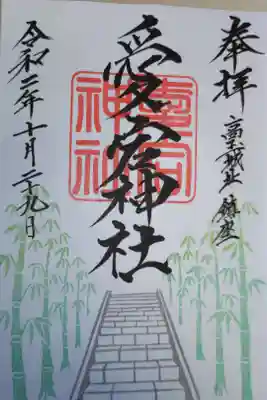 奉拝
高玉城址 鎮座
愛宕神社
愛宕
神社
令和二年十月二十九日